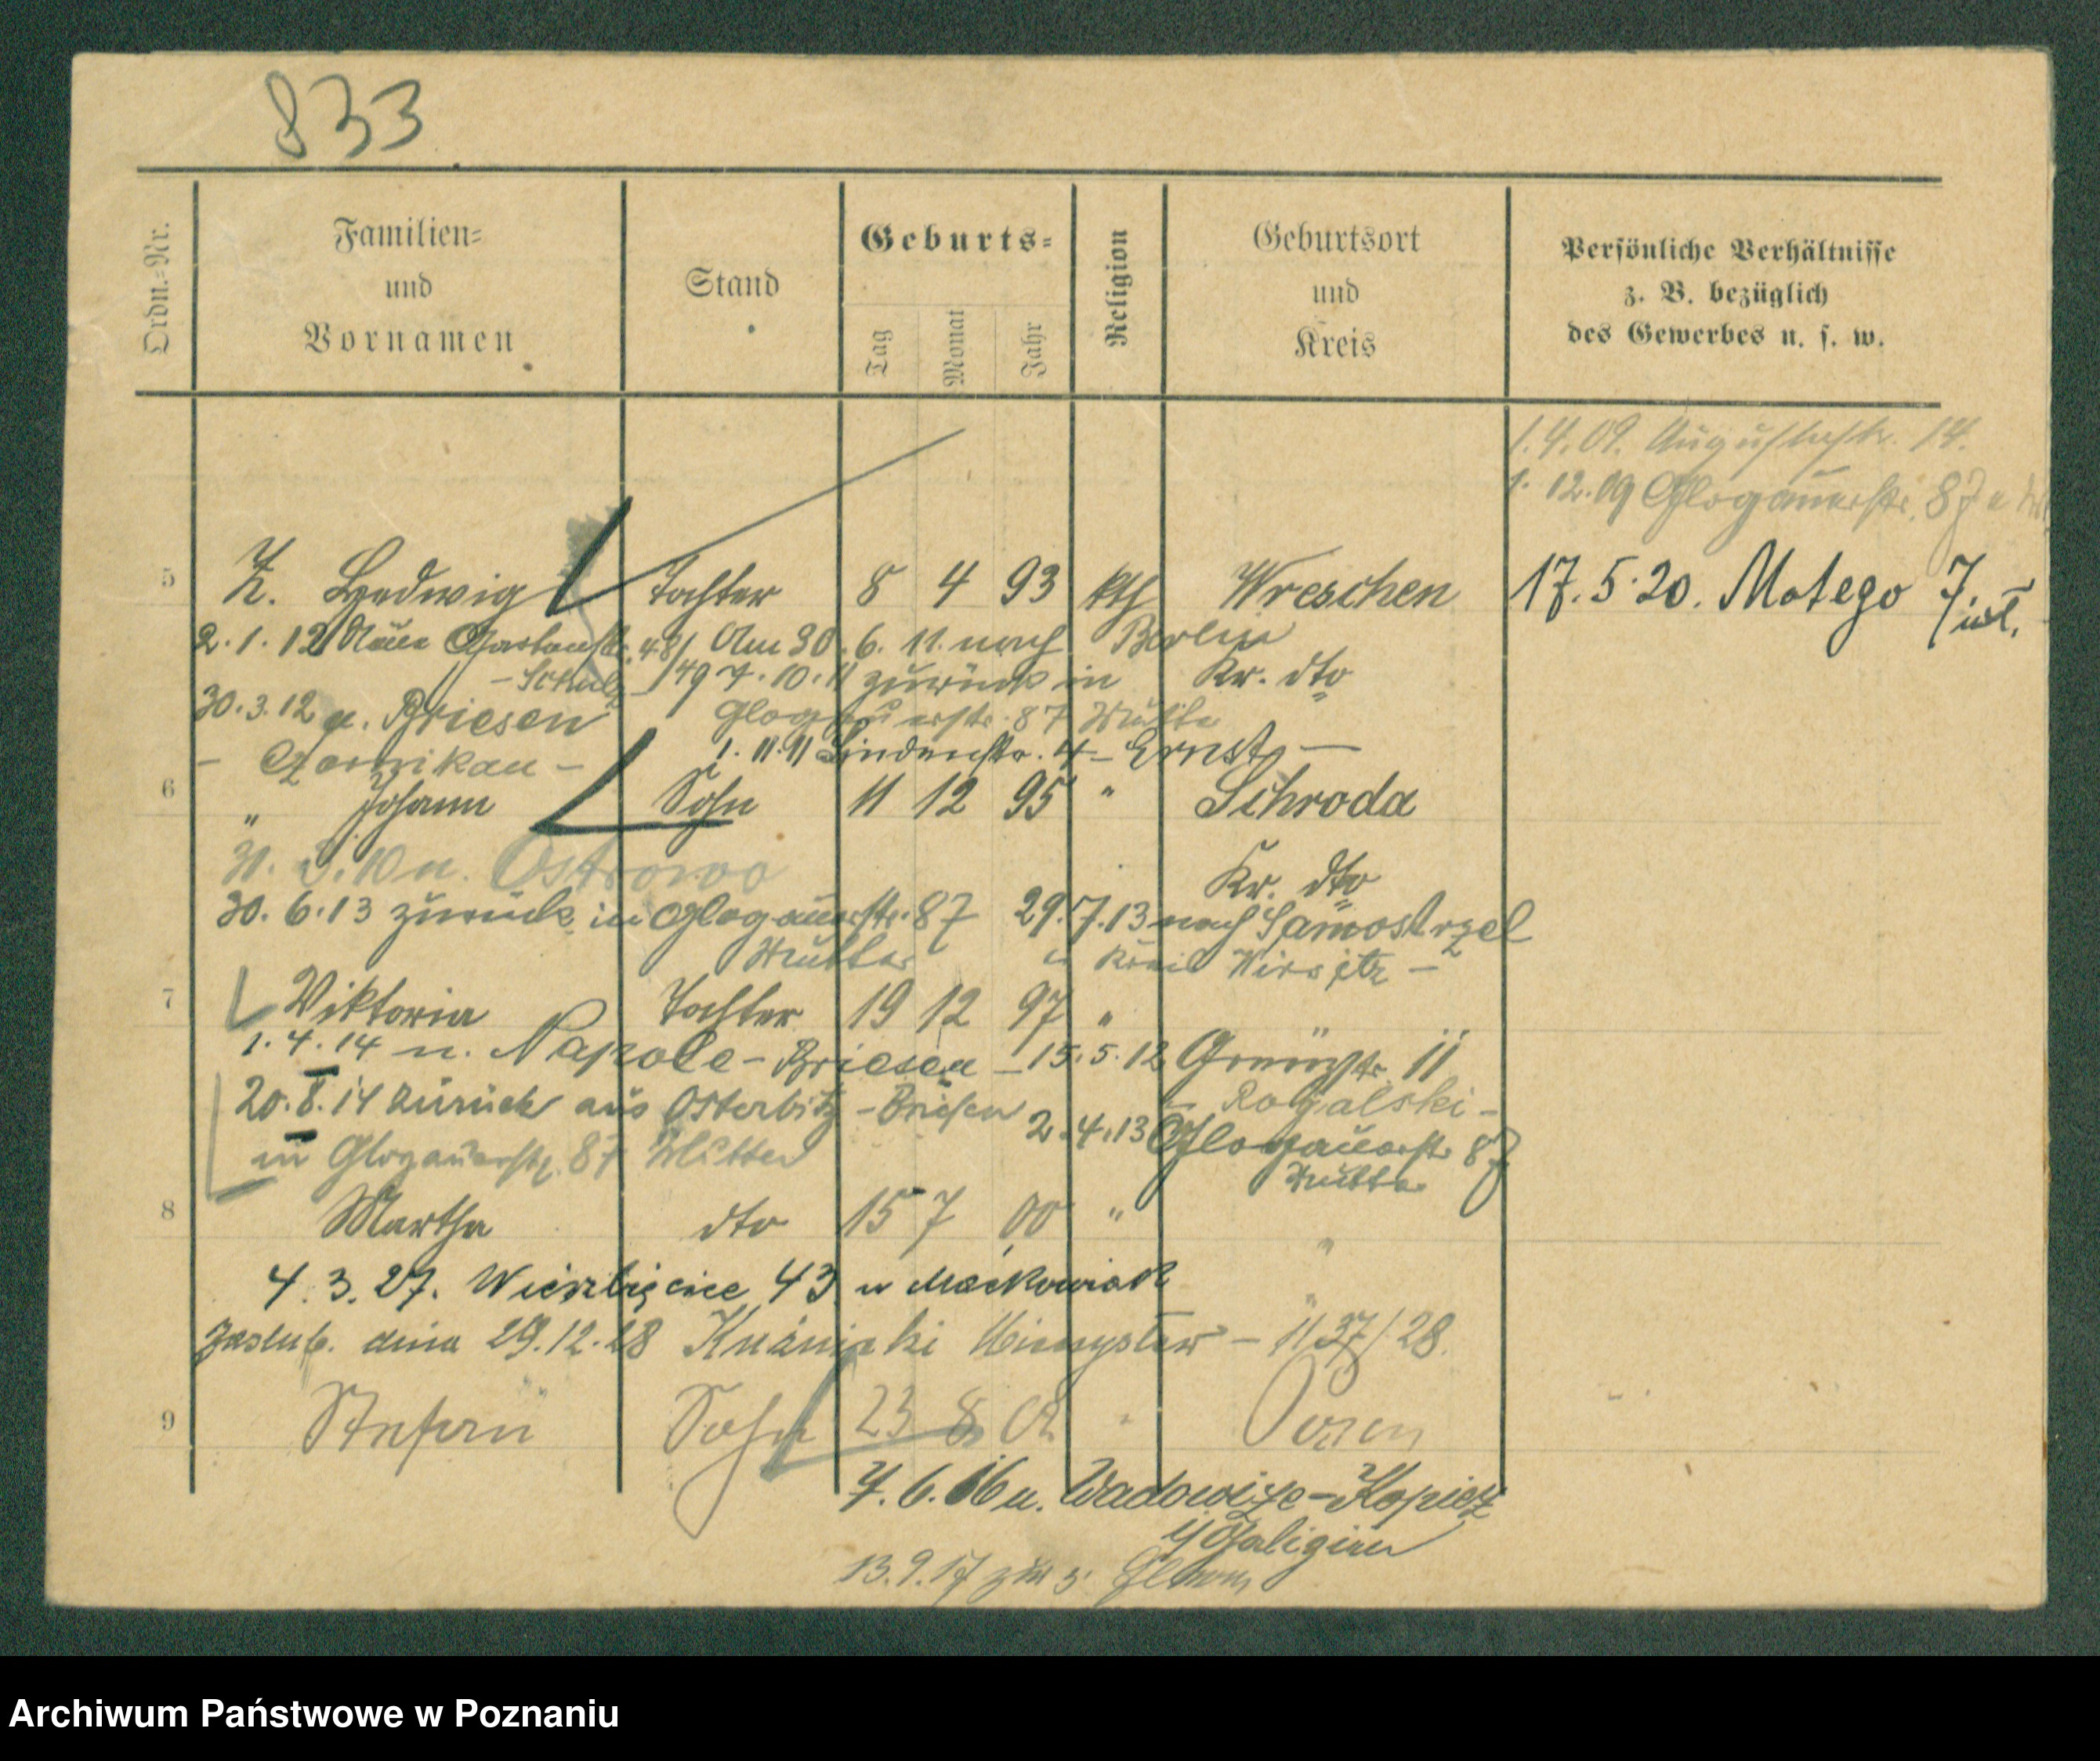 833
Ordn.=Nr.
Familien=
und
Vornamen
Stand
Geburts=
Tag
Monat
Jahr
Religion
Geburtsort
und
Kreis
Persönliche Verhältnisse
z. B. bezüglich
des Gewerbes u. s. w.
1.4.09. Augustastr. 14.
1.12.09 Glogauerstr. 87
5 Z. Hedwig Tochter 8 4 93 kth Wreschen 17.5.20. Matego 7
2.1.12 Neue Gartenstr. 48/49 Am 30.6.11. nach Berlin
7.10.11 zurück in Kr. dto
30.3.12 n. Briesen Glogauerstr. 87 Mutter
- Czarnikau - 1.11.11 Lindenstr. 4 - Ernst -
6 " Johann Sohn 11 12 95 " Schroda
n. Ostrowo
Kr. dto
30.6.13 zurück in Glogauerstr. 87 29.7.13 nach Samostrzel
Mutter Kreis Wirsitz -
7 Viktoria Tochter 19 12 97 "
1.4.14 n. - Briesen - 15.5.12 11
- Rogalski -
20.8.14 zurück aus Osterbitz - Briesen
2.4.13 Glogauerstr. 87
in Glogauerstr. 87 Mutter
Mutter
8 Martha dto 15 7 00 "
4.3.27. Wierzbięcice 43 u Maćkowiak
zaślub. dnia 29.12.28 - 1137/28.
9 Stefan Sohn 23 8 02 " Posen
7.6.16 n. Wadowize - Kopietz
i/ Galizien
13.9.17
Archiwum Państwowe w Poznaniu